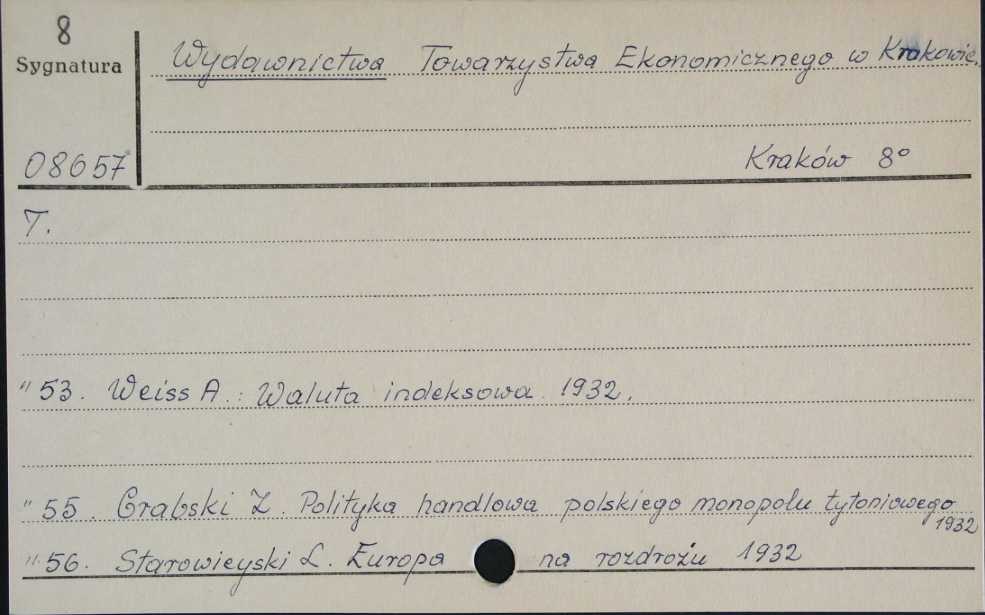 8
Sygnatura
Wydawnictwa Towarzystwa Ekonomicznego w Krakowie.
08657
Kraków 8°
T.
" 53. Weiss A.: Waluta indeksowa. 1932.
" 55. Grabski Z. Polityka handlowa polskiego monopolu tytoniowego
1932
" 56. Starowieyski L. Europa na rozdrożu 1932